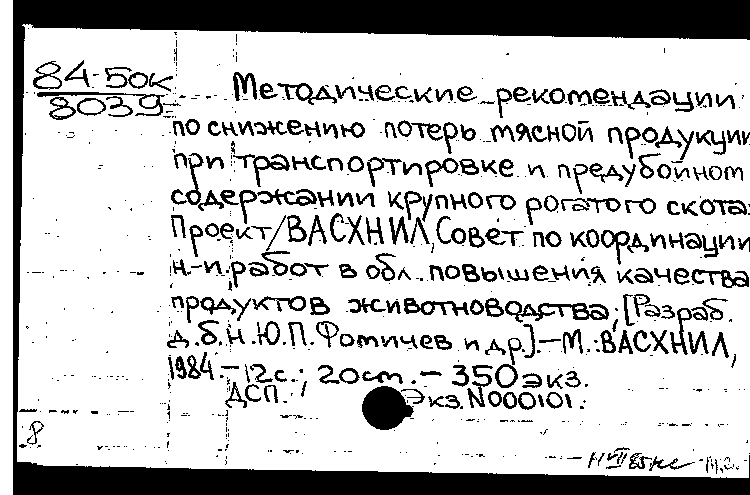 84-50к
8039
Методические рекомендации
по снижению потерь мясной продукции
при транспортировке и предубойном
содержании крупного рогатого скота:
Проект/ВАСХНИЛ, Совет по координации
н.-и. работ в обл. повышения качества
продуктов животноводства; [Разраб.
д.б.н. Ю.П. Фомичев и др.].-М.: ВАСХНИЛ,
1984.-12с.; 20см.-350экз.
ДСП. Экз. N000101.
8